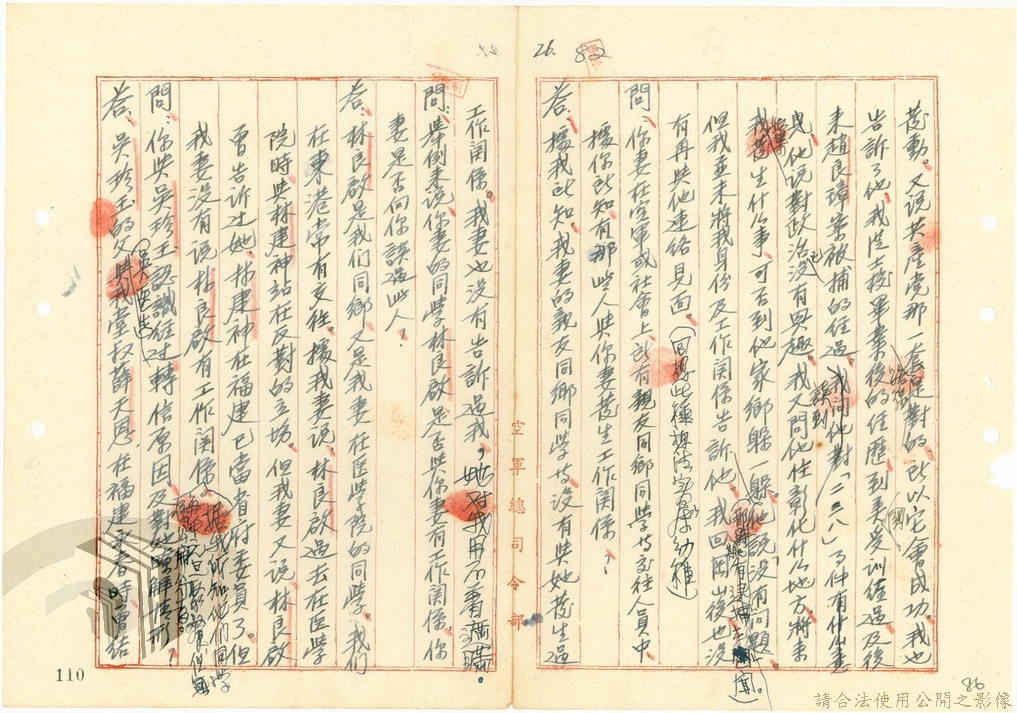 26.
82
發動。又說共產党那一套是對的，所以它會成功。我也
告訴了他，我從士校畢業後的經歷，到美受訓經過及後
來趙良璋案被捕的經過。我問他對「二二八」事件有什么意
見，他說對政治已沒有興趣。我又問他住彰化什么地方，將來
我發生什么事，可否到他家鄉躲一躲。他說「沒有問題」。
但我並未將我身份及工作関係告訴他。我回岡山後也沒
有再與他連絡見面。（回想此種談法實属幼稚）
問：你妻在空軍或社會上，所有親友同鄉同學等交往人員中
據你所知有那些人與你妻發生工作関係？
答：據我所知，我妻的親友同鄉同學等沒有與她發生過
工作関係。我妻也沒有告訴過我，她对我用不着隱瞞。
問：舉例來說你妻的同學林良啟是否與你妻有工作関係，你
妻是否向你談過些人？
答：林良啟是我们同鄉，又是我妻在医學院的同學。我们
在東港常有交往。據我妻說，林良啟過去在医學
院時，與林建神站在反對的立場。但我妻又說林良啟
曾告訴过她，林建神在福建已當省府委員了。但
我妻没有說林良啟有工作関係。
問：你與吳珍玉認識經过，轉信原因及對她了解情形？
答：吳珍玉的父（吳醫生）與我堂叔薛天恩在福建永春時，曾結
空軍總司令部
110
86
請合法使用公開之影像